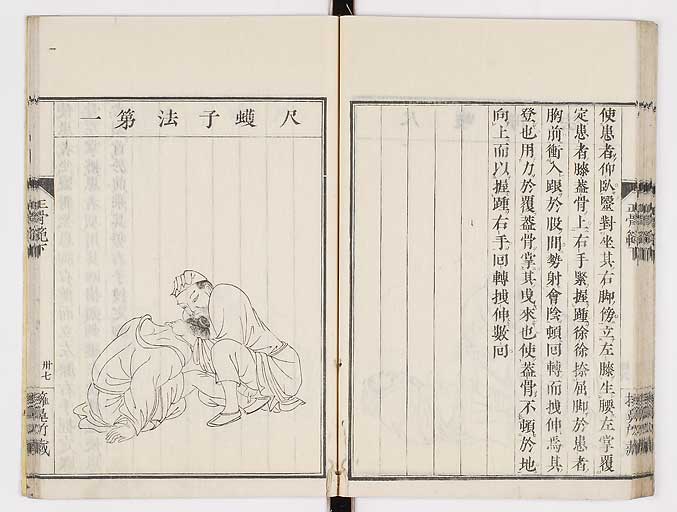 使患者仰臥醫對坐其右脚傍立左膝生腰左掌覆
定患者膝葢骨上右手緊握踵徐徐捺屈脚於患者
胸前衝入跟於股間勢射會陰頓回轉而拽伸爲其
登也用力於覆葢骨掌其曳來也使葢骨不頓於地
向上而以握踵右手回轉拽伸數回
正骨範
尺蠖子法第一
正骨範下
卅七